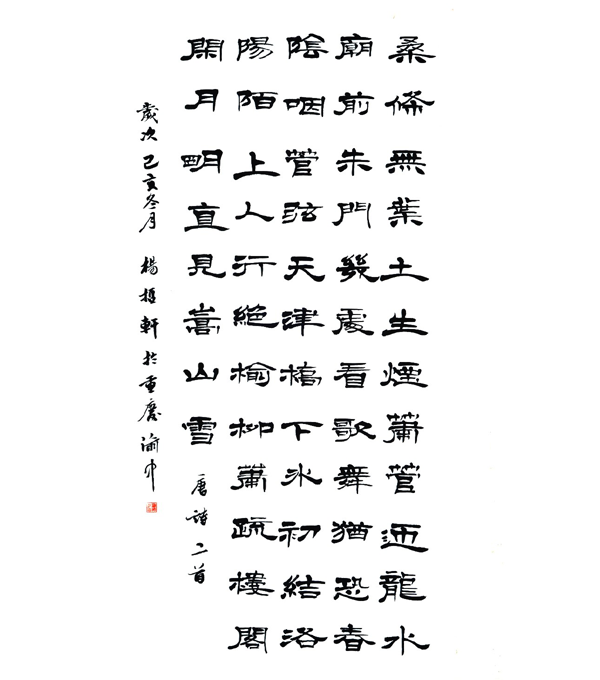 桑條無葉土生煙簫管迎龍水
廟前朱門幾處看歌舞猶恐春
陰咽管弦天津橋下冰初結洛
陽陌上人行絕榆柳蕭疏樓閣
閑月明直見嵩山雪
唐詩二首
歲次己亥冬月 楊軒於重慶渝中